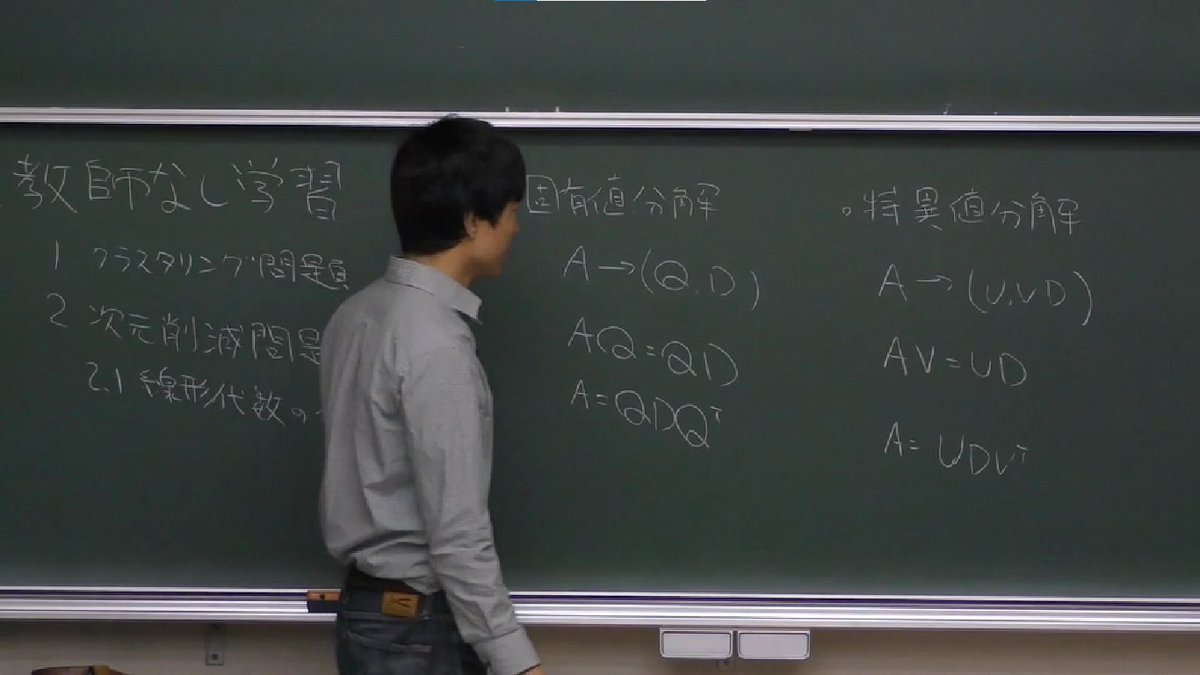 教師なし学習
1 クラスタリング問題
2 次元削減問題
2.1 線形代数の
固有値分解
A→(Q,D)
AQ=QD
A=QDQᵀ
。特異値分解
A→(U,VD)
AV=UD
A=UDVᵀ